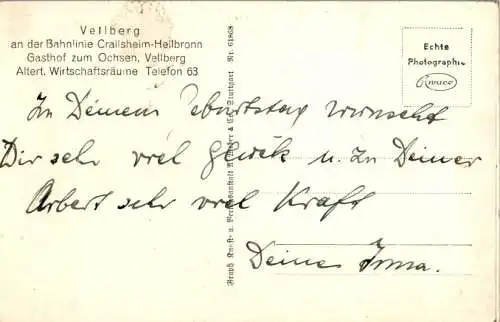 Vellberg
an der Bahnlinie Crailsheim-Heilbronn
Gasthof zum Ochsen, Vellberg
Altert. Wirtschaftsräume Telefon 63
Echte
Photographie
Zu Deinem Geburtstag wünscht
Dir sehr viel Glück u. zu Deiner
Arbeit sehr viel Kraft
Deine Irma.
Graph. Kunst- u. Verlagsanstalt & Co., Stuttgart Nr. 61868